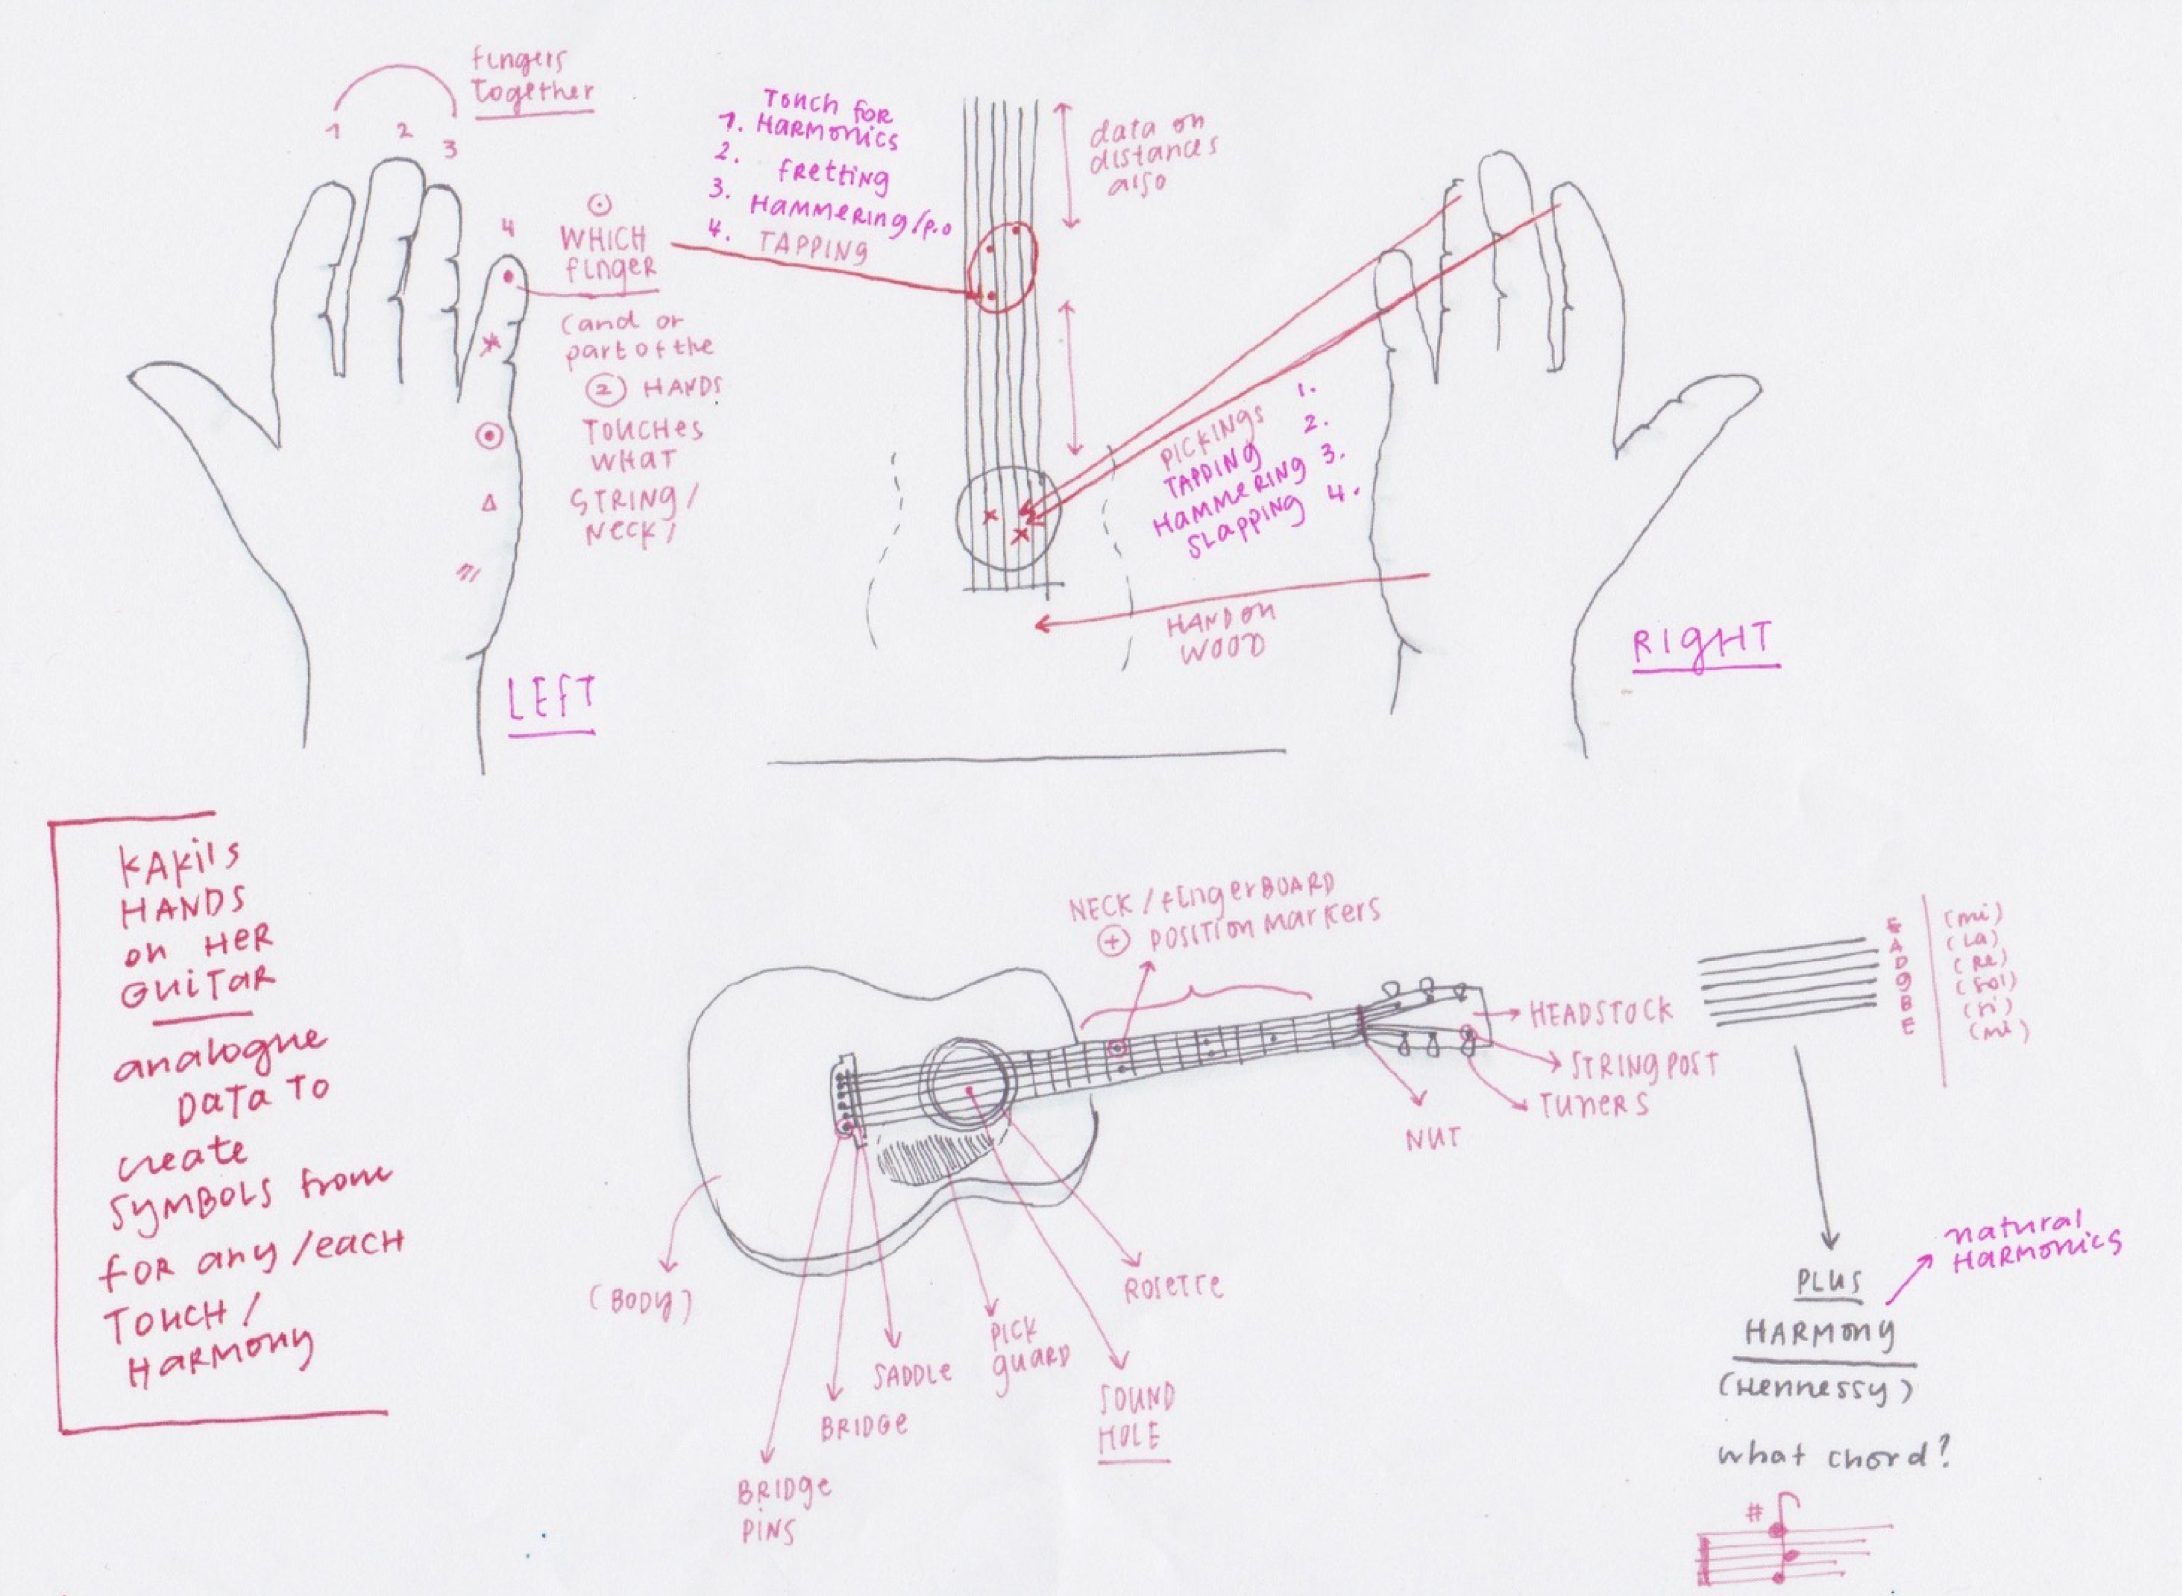 fingers
together
1 2 3
4
WHICH
finger
(and or
part of the
2 HANDS
TOUCHES
WHAT
STRING/
NECK/
LEFT
Touch for
1. HARMONICS
2. fRETTING
3. HAMMERING/p.o
4. TAPPING
data on
distances
also
PICKINGS 1.
TAPPING 2.
HAMMERING 3.
SLAPPING 4.
HAND ON
WOOD
RIGHT
KAKiIS
HANDS
on HER
GUITAR
analogue
DATA TO
create
SYMBOLS from
FOR any/each
TOUCH/
HARMONY
NECK/fingerBOARD
+ POSITION MARKERS
HEADSTOCK
STRING POST
TUNERS
NUT
(BODY)
ROSETTE
PICK
GUARD
SADDLE
SOUND
HOLE
BRIDGE
BRIDGE
PINS
E (mi)
A (La)
D (Re)
g (sol)
B (si)
E (mi)
natural
HARMONICS
PLUS
HARMONY
(Hennessy)
what chord?
#